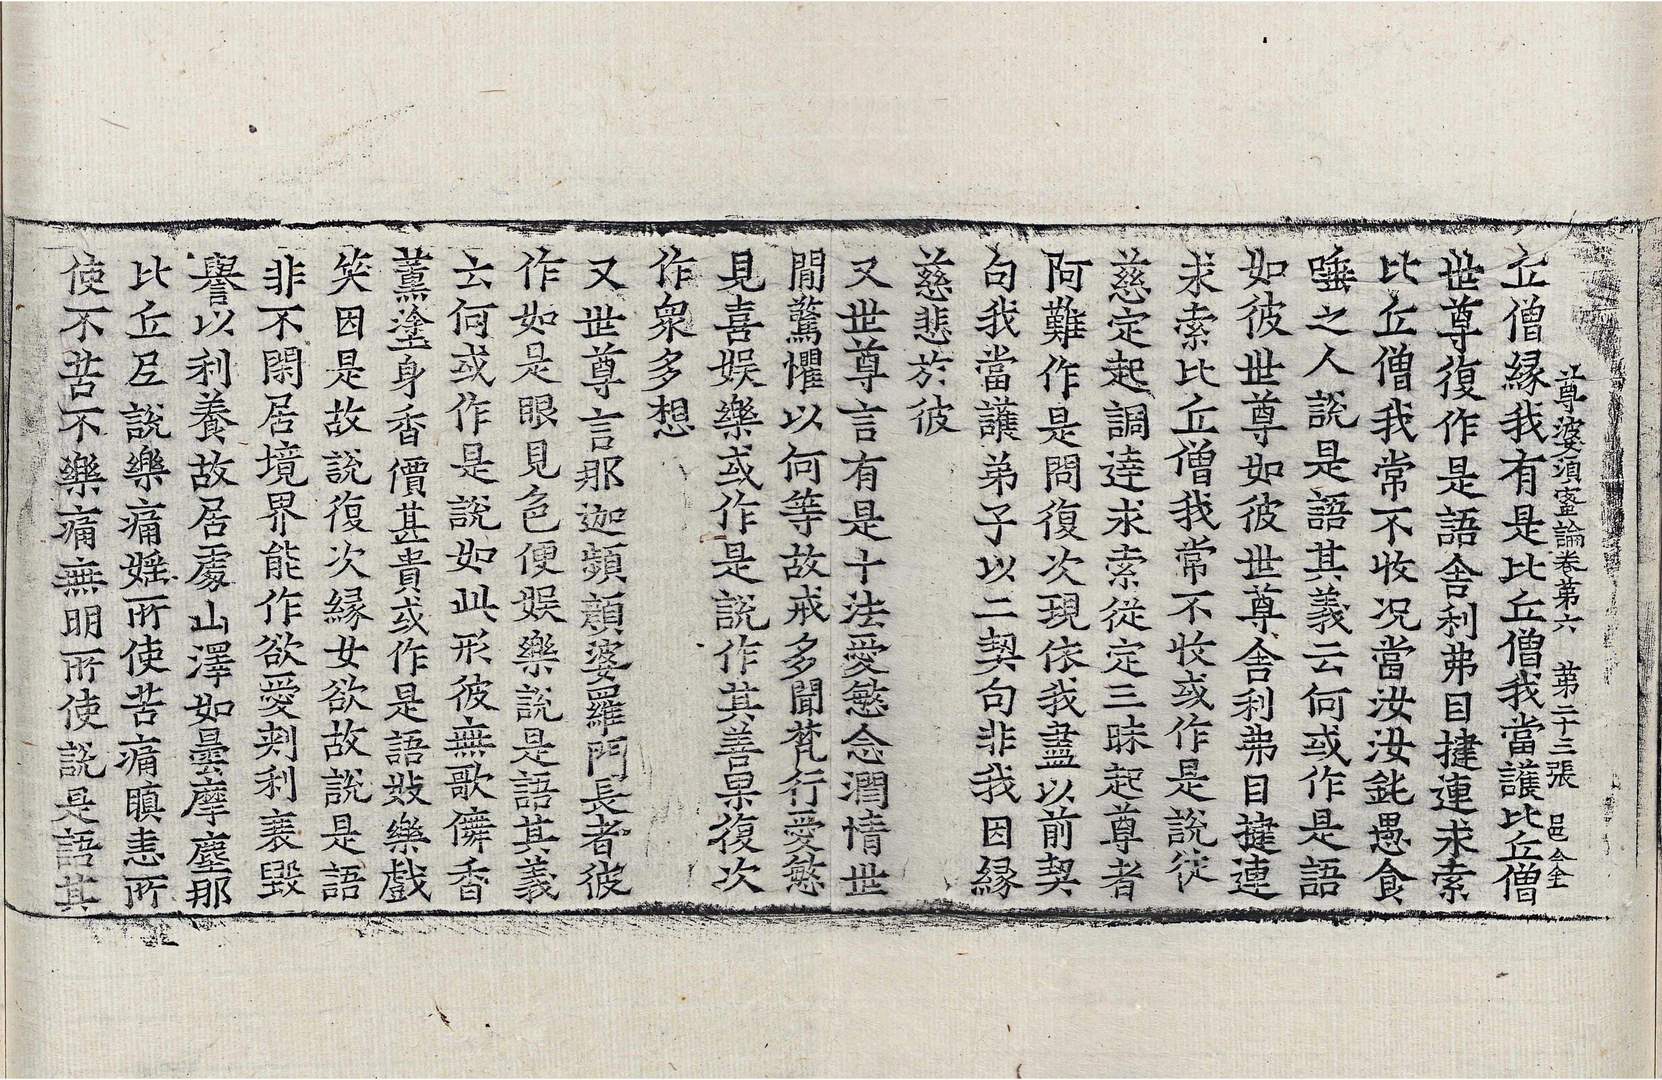 尊婆須蜜論卷第六　第二十三張　邑
丘僧緣我有是比丘僧我當護比丘僧
世尊復作是語舍利弗目揵連求索
比丘僧我常不收况當汝汝鈍愚食
唾之人說是語其義云何或作是語
如彼世尊如彼世尊舍利弗目揵連
求索比丘僧我常不收或作是說從
慈定起調達求索從定三昧起尊者
阿難作是問復次現依我盡以前契
句我當護弟子以二契句非我因緣
慈悲於彼
又世尊言有是十法愛慜念潤情世
間驚懼以何等故戒多聞梵行愛慜
見喜娛樂或作是說作其善果復次
作衆多想
又世尊言那迦頻頭婆羅門長者彼
作如是眼見色便娛樂說是語其義
云何或作是說如此形彼無歌儛香
薰塗身香價甚貴或作是語妓樂戲
笑因是故說復次緣女欲故說是語
非不閑居境界能作欲愛剎利衰毀
譽以利養故居處山澤如曇摩塵那
比丘尼說樂痛婬所使苦痛瞋恚所
使不苦不樂痛無明所使說是語其